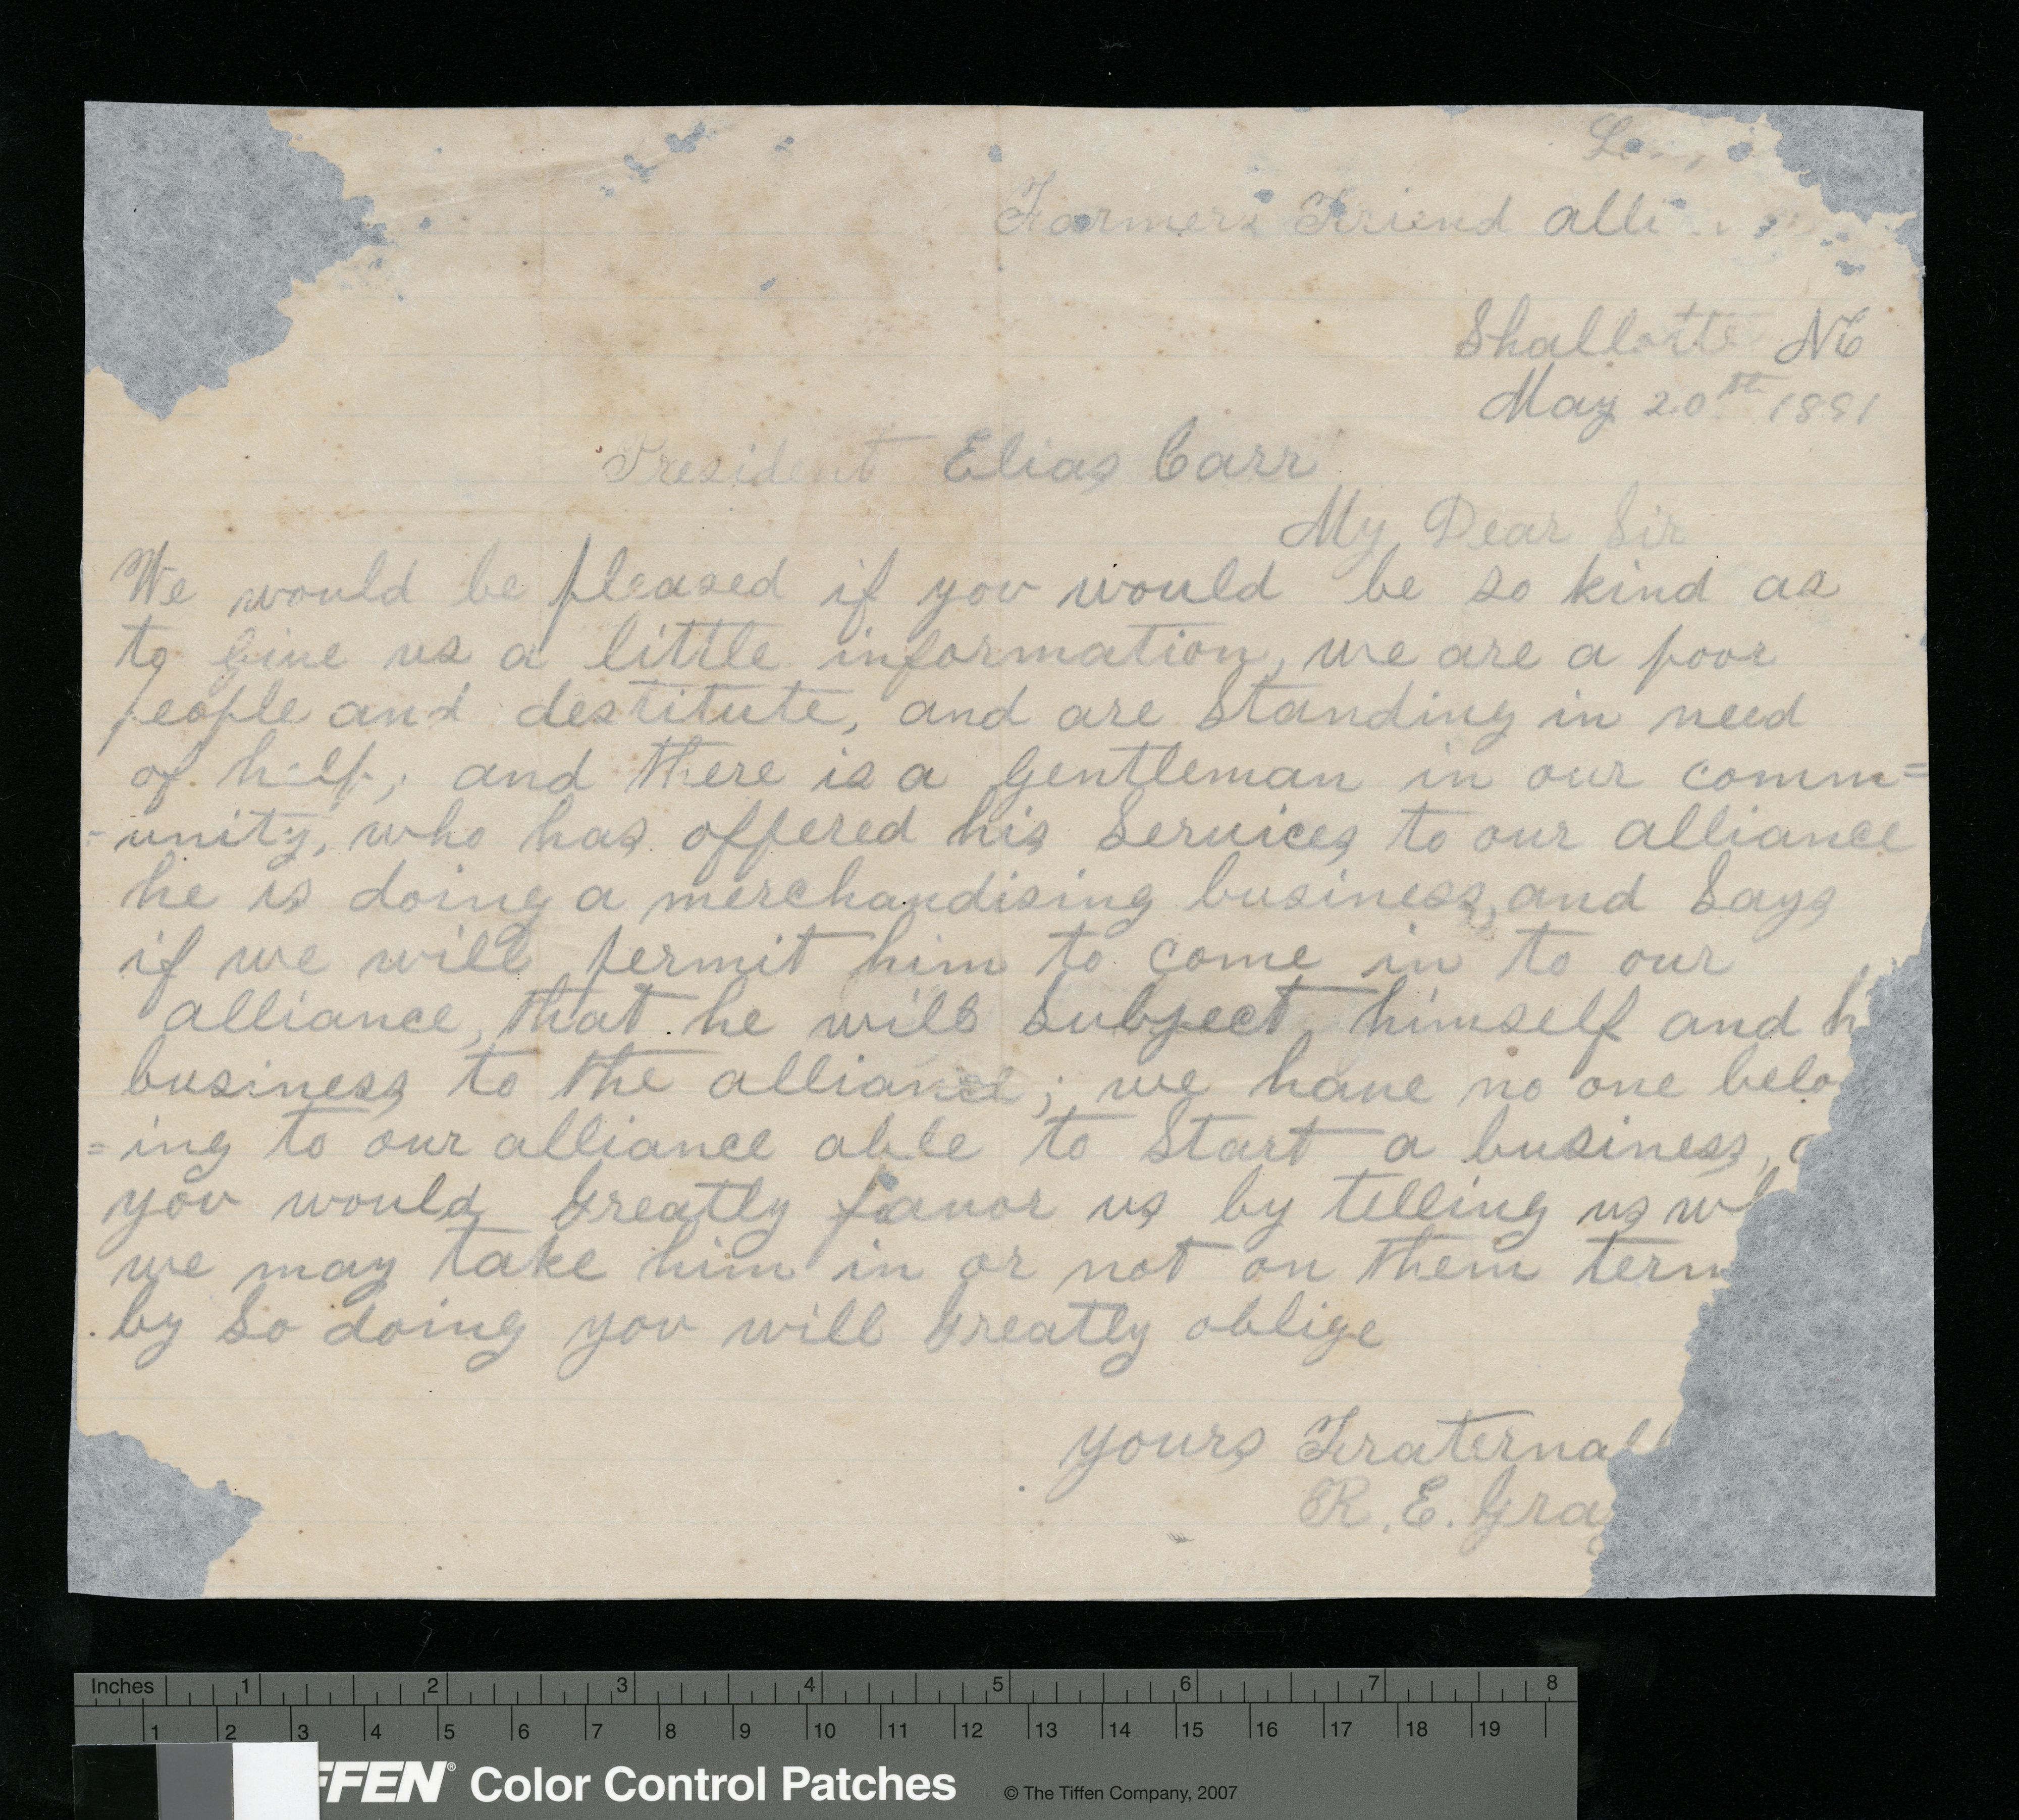 Farmers Friend alli
Shallotte NC
May 20th 1891
President Elias Carr
My Dear Sir
We would be pleased if you would be so kind as
to Give us a little information, we are a poor
people and destitute, and are Standing in need
of help; and there is a Gentleman in our comm=
=unity, who has offered his Services to our alliance
he is doing a merchandising business, and Says
if we will permit him to come in to our
alliance, that he will Subject himself and h
business to the alliance; we have no one belo
=ing to our alliance able to Start a business,
you would Greatly favor us by telling us wh
we may take him in or not on them term
by So doing you will Greatly oblige
yours Fraternall
R. E. Gray
Inches 1 2 3 4 5 6 7 8
1 2 3 4 5 6 7 8 9 10 11 12 13 14 15 16 17 18 19
FFEN® Color Control Patches © The Tiffen Company, 2007